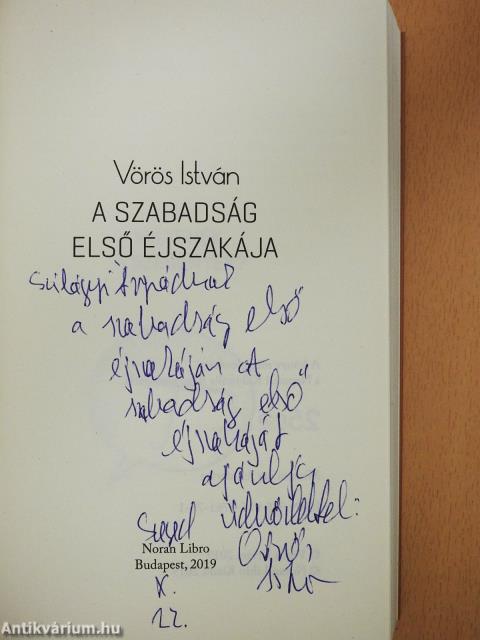 Vörös István
A SZABADSÁG
ELSŐ ÉJSZAKÁJA
Szilágyi Árpádnak
a szabadság első
éjszakáján A
szabadság első
éjszakáját
ajánlja
üdvözlettel:
Vörös
Noran Libro
Budapest, 2019
X.
22.
Antikvárium.hu